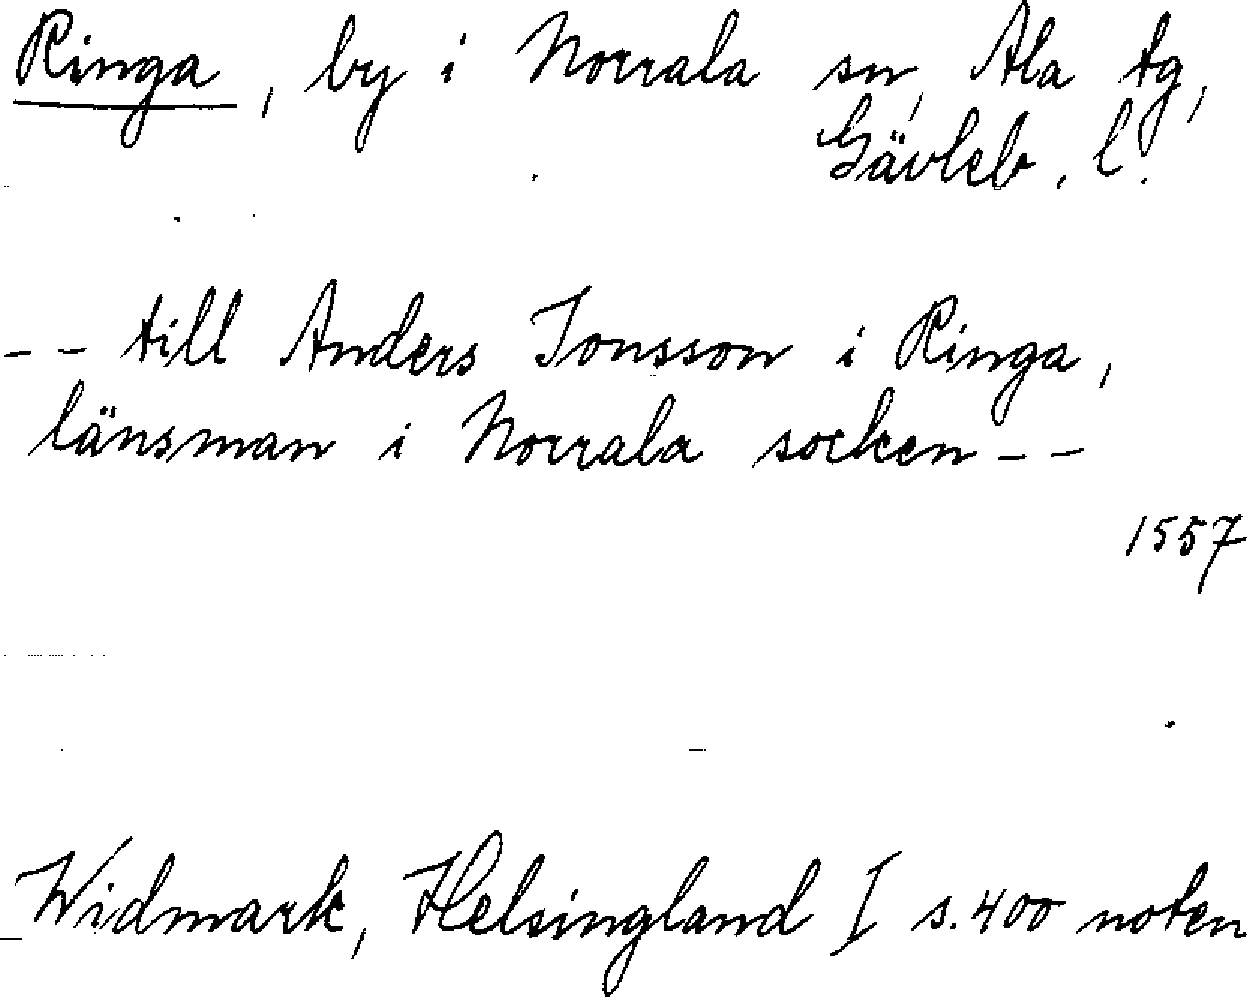 Ringa, by i Norrala sn, Ala tg,
Gävleb. l.
-- till Anders Jonsson i Ringa,
länsman i Norrala socken --
1557
Widmark, Helsingland I s. 400 noten